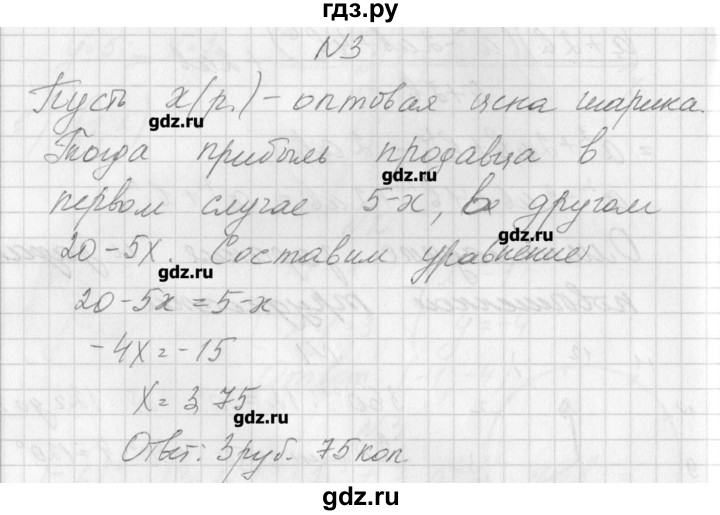 гдз.ру
N3
Пусть x(р.) - оптовая цена шарика.
gdz.ru
Тогда прибыль продавца в
gdz.ru
первом случае 5-x, в другом
gdz.ru
20-5x. Составим уравнение:
gdz.ru
20-5x=5-x
-4x=-15
x=3,75
gdz.ru
Ответ: 3 руб. 75 коп.
gdz.ru